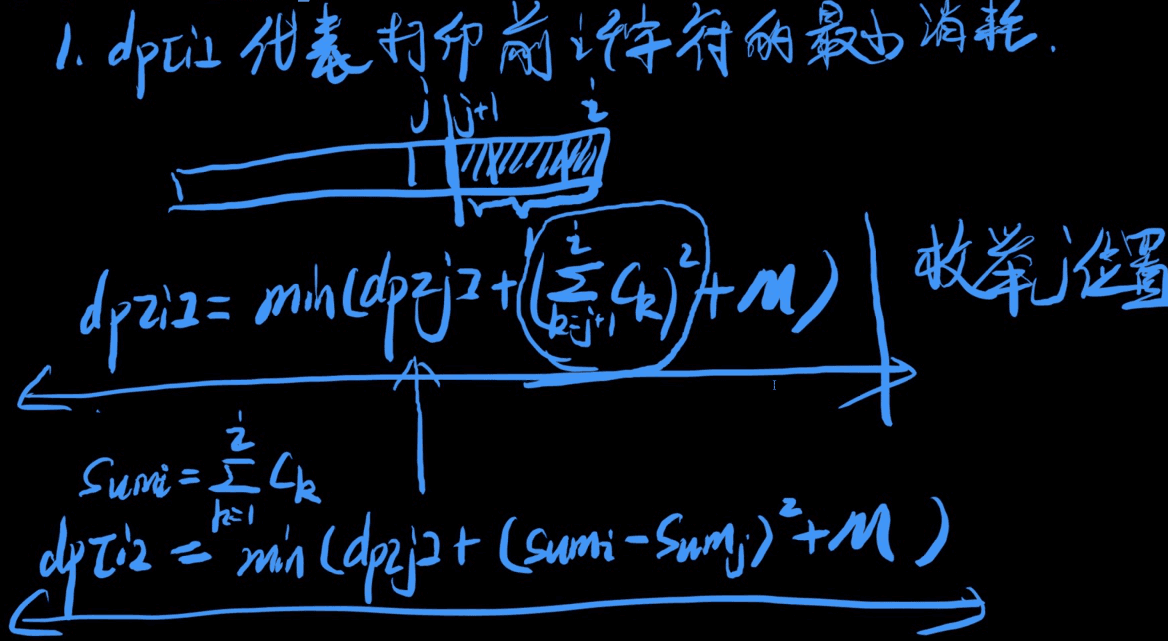 1. dp[i] 代表打印前i个字符的最少消耗.
j j+1 i
dp[i] = min(dp[j] + (∑_{k=j+1}^{i} C_k)^2 + M) 枚举j位置
sum_i = ∑_{k=1}^{i} C_k
dp[i] = min(dp[j] + (sum_i - sum_j)^2 + M)